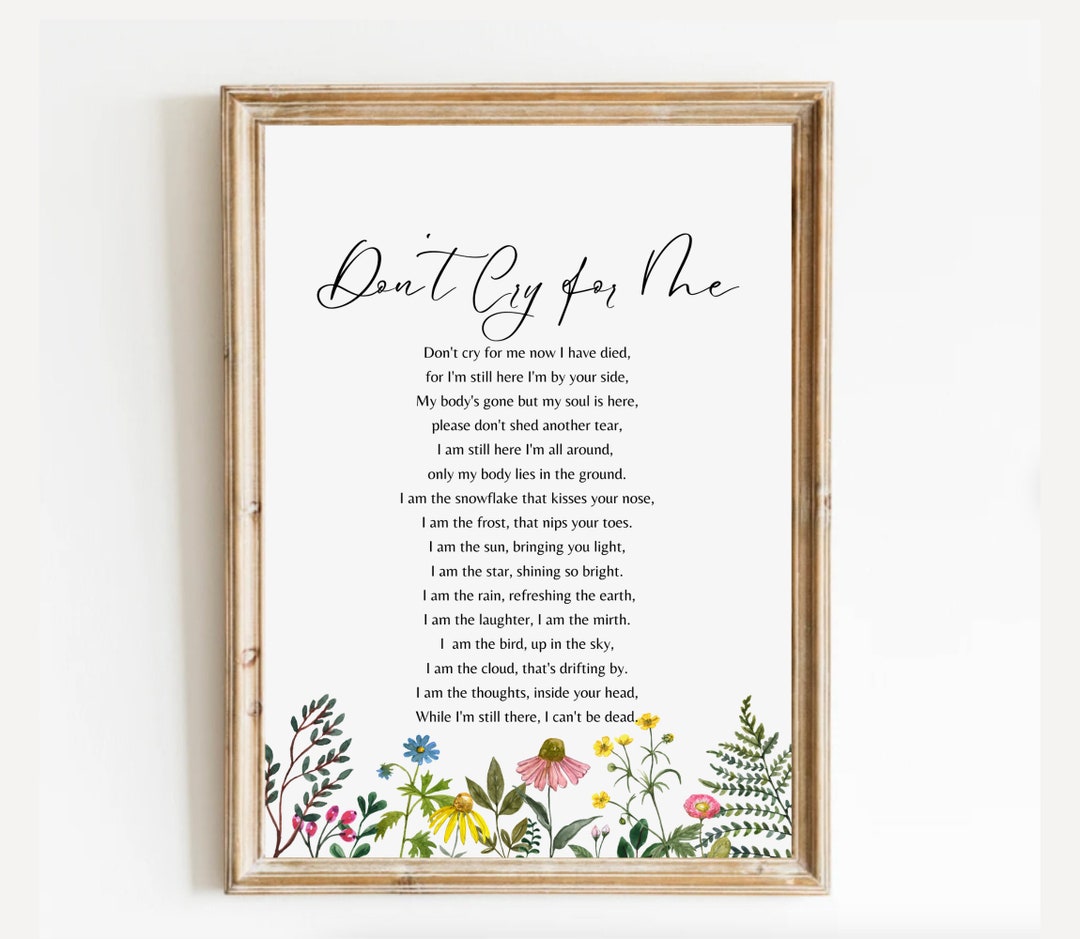 Don't Cry for Me
Don't cry for me now I have died,
for I'm still here I'm by your side,
My body's gone but my soul is here,
please don't shed another tear,
I am still here I'm all around,
only my body lies in the ground.
I am the snowflake that kisses your nose,
I am the frost, that nips your toes.
I am the sun, bringing you light,
I am the star, shining so bright.
I am the rain, refreshing the earth,
I am the laughter, I am the mirth.
I  am the bird, up in the sky,
I am the cloud, that's drifting by.
I am the thoughts, inside your head,
While I'm still there, I can't be dead.